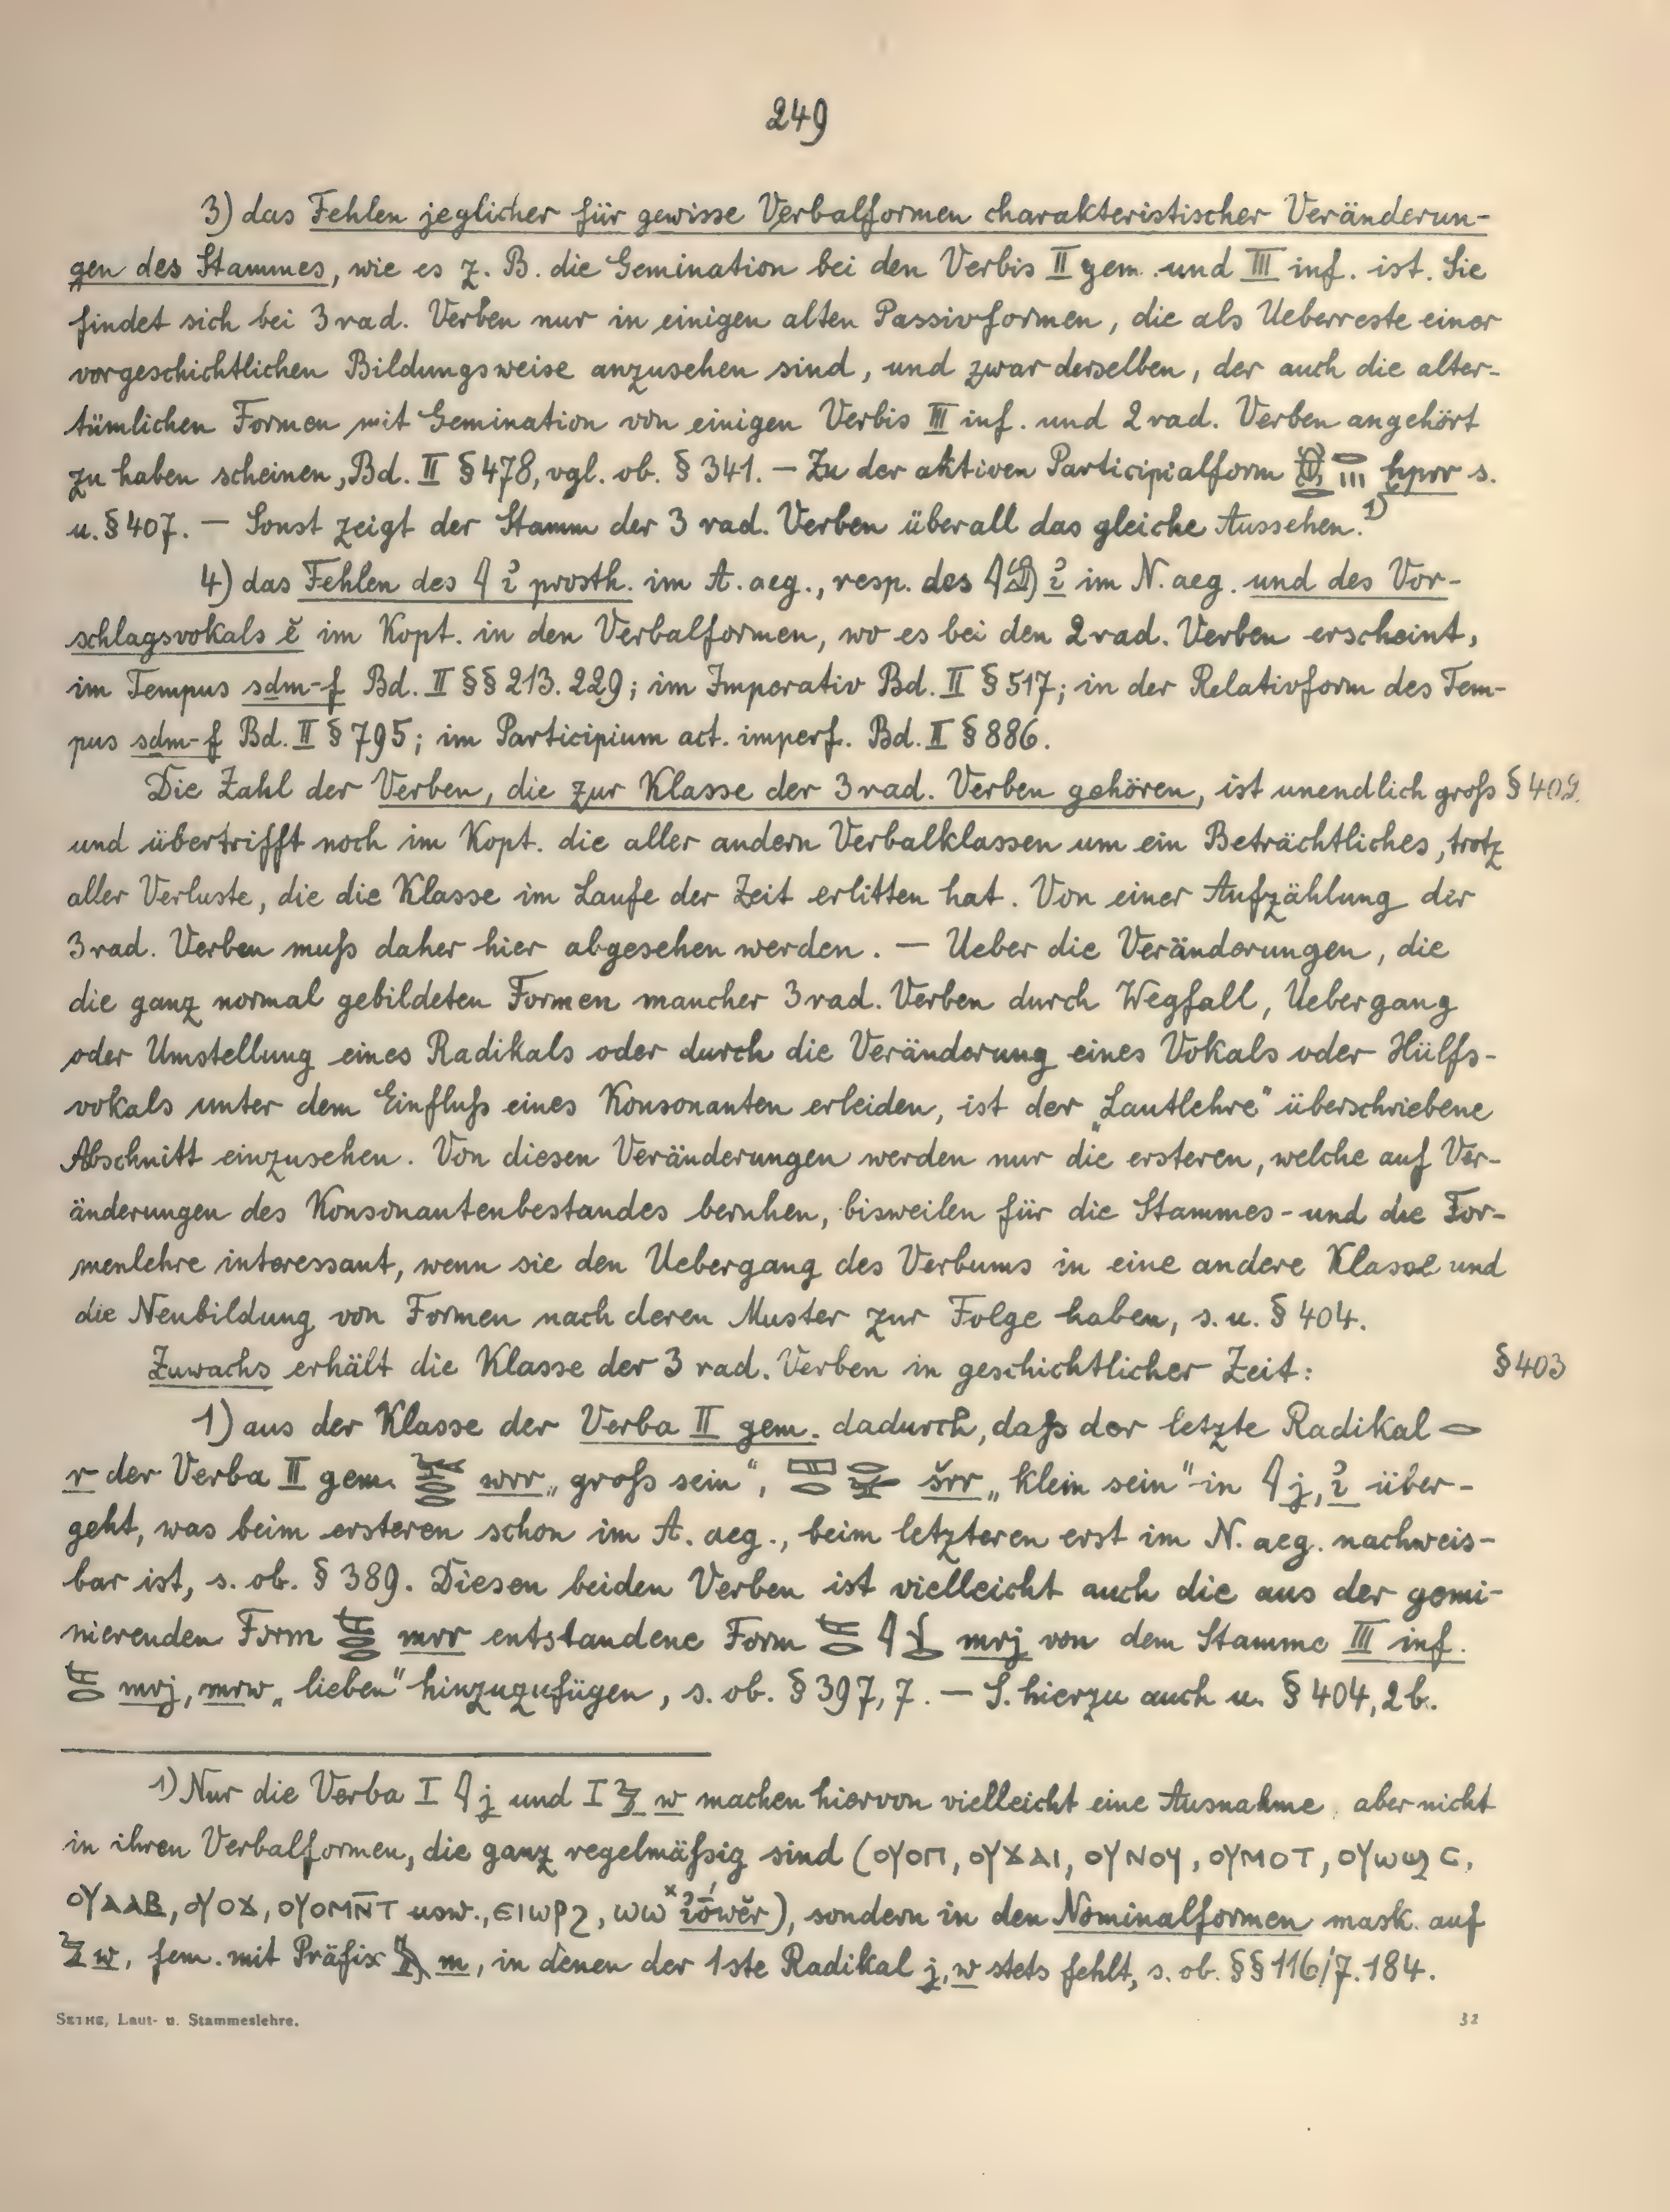 249
3) das Fehlen jeglicher für gewisse Verbalformen charakteristischer Veränderun-
gen des Stammes, wie es z. B. die Gemination bei den Verbis II gem. und III inf. ist. Sie
findet sich bei 3rad. Verben nur in einigen alten Passivformen, die als Ueberreste einer
vorgeschichtlichen Bildungsweise anzusehen sind, und zwar derselben, der auch die alter-
tümlichen Formen mit Gemination von einigen Verbis III inf. und 2rad. Verben angehört
zu haben scheinen, Bd. II § 478, vgl. ob. § 341. — Zu der aktiven Participialform ḫprr s.
u. § 407. — Sonst zeigt der Stamm der 3 rad. Verben überall das gleiche Aussehen. 1)
4) das Fehlen des 𓇋 ꞽ prosth. im A. aeg., resp. des 𓇋𓀁 ꞽ im N. aeg. und des Vor-
schlagsvokals ĕ im Kopt. in den Verbalformen, wo es bei den 2rad. Verben erscheint,
im Tempus sdm-f Bd. II §§ 213. 229; im Imperativ Bd. II § 517; in der Relativform des Tem-
pus sdm-f Bd. II § 795; im Participium act. imperf. Bd. II § 886.
Die Zahl der Verben, die zur Klasse der 3rad. Verben gehören, ist unendlich groß § 402.
und übertrifft noch im Kopt. die aller andern Verbalklassen um ein Beträchtliches, trotz
aller Verluste, die die Klasse im Laufe der Zeit erlitten hat. Von einer Aufzählung der
3rad. Verben muß daher hier abgesehen werden. — Ueber die Veränderungen, die
die ganz normal gebildeten Formen mancher 3rad. Verben durch Wegfall, Uebergang
oder Umstellung eines Radikals oder durch die Veränderung eines Vokals oder Hülfs-
vokals unter dem Einfluß eines Konsonanten erleiden, ist der „Lautlehre“ überschriebene
Abschnitt einzusehen. Von diesen Veränderungen werden nur die ersteren, welche auf Ver-
änderungen des Konsonantenbestandes beruhen, bisweilen für die Stammes- und die For-
menlehre interessant, wenn sie den Uebergang des Verbums in eine andere Klasse und
die Neubildung von Formen nach deren Muster zur Folge haben, s. u. § 404.
Zuwachs erhält die Klasse der 3 rad. Verben in geschichtlicher Zeit: § 403
1) aus der Klasse der Verba II gem. dadurch, daß der letzte Radikal 𓂋
r der Verba II gem. 𓅨𓂋𓂋 wrr „groß sein“, 𓈙𓂋𓂋𓅪 šrr „klein sein“ in 𓇋 j, ꞽ über-
geht, was beim ersteren schon im A. aeg., beim letzteren erst im N. aeg. nachweis-
bar ist, s. ob. § 389. Diesen beiden Verben ist vielleicht auch die aus der gemi-
nierenden Form 𓌸𓂋𓂋 mrr entstandene Form 𓌸𓂋𓇋 mrj von dem Stamme III inf.
𓌸𓂋 mrj, mrw „lieben“ hinzuzufügen, s. ob. § 397, 7. — S. hierzu auch u. § 404, 2 b.
1) Nur die Verba I 𓇋 j und I 𓅱 w machen hiervon vielleicht eine Ausnahme, aber nicht
in ihren Verbalformen, die ganz regelmäßig sind (ⲟⲩⲟⲡ, ⲟⲩϫⲁⲓ, ⲟⲩⲛⲟⲩ, ⲟⲩⲙⲟⲧ, ⲟⲩⲱϣⲥ,
ⲟⲩⲁⲁⲃ, ⲟⲩⲟϫ, ⲟⲩⲟⲙⲛ̄ⲧ usw., ⲉⲓⲱⲣϩ, ⲱⲱ), sondern in den Nominalformen mask. auf
𓅱 w, fem. mit Präfix 𓅓 m, in denen der 1ste Radikal j, w stets fehlt, s. ob. §§ 116/7. 184.
SETHE, Laut- u. Stammeslehre. 32